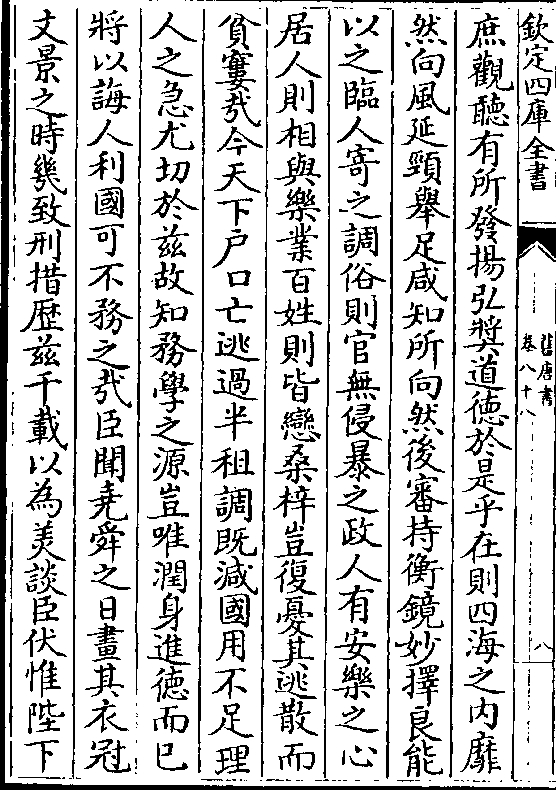 欽定四庫全書
舊唐書
卷八十八
八
庶觀聽有所發揚弘奬道徳於是乎在則四海之内靡
然向風延頸舉足咸知所向然後審持衡鏡妙擇良能
以之臨人寄之調俗則官無侵暴之政人有安樂之心
居人則相與樂業百姓則皆戀桑梓豈復憂其逃散而
貧窶㢤今天下户口亡逃過半租調既減國用不足理
人之急尤切於兹故知務學之源豈唯潤身進徳而已
將以誨人利國可不務之㢤臣聞堯舜之日畫其衣冠
文景之時幾致刑措歴兹千載以為美談臣伏惟陛下